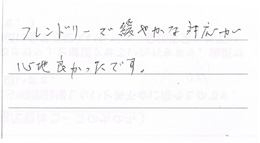 フレンドリーで緩やかな対応が
心地良かったです。